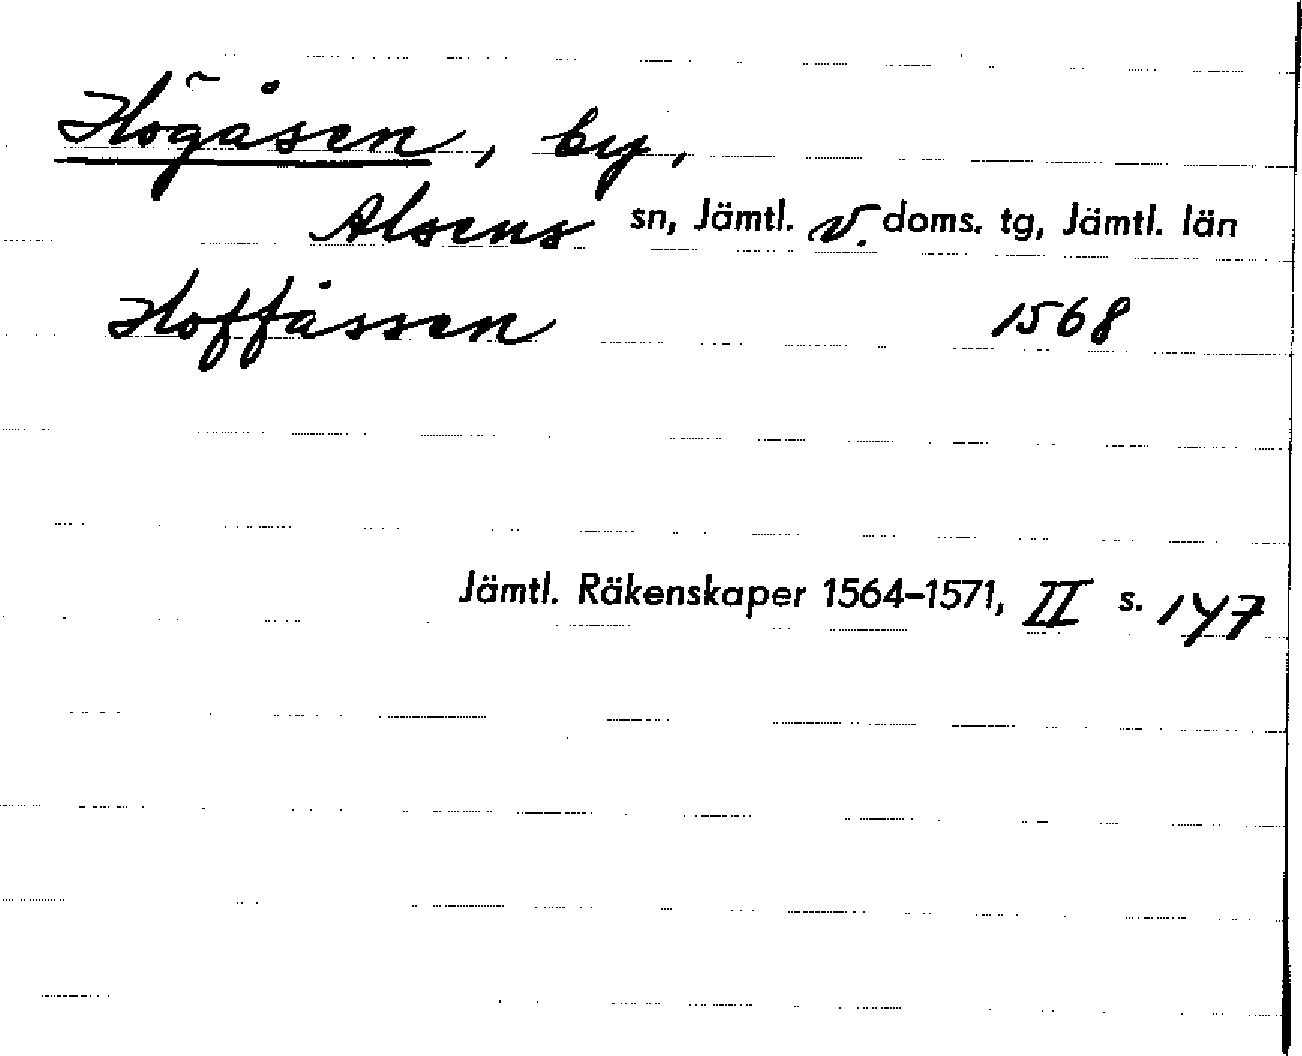 Högåsen, by,
Alsens sn, Jämtl. v. doms. tg, Jämtl. län
Hoffåssen 1568
Jämtl. Räkenskaper 1564–1571, II s. 147